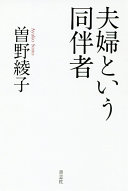 夫婦という
同伴者
Ayako Sono
曽野綾子
青志社